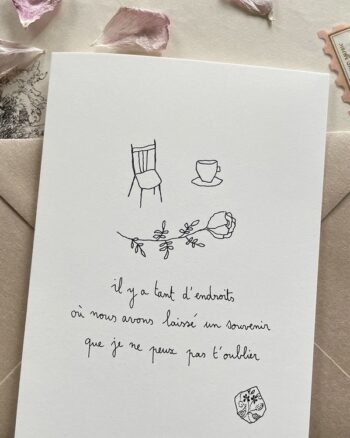 il y a tant d'endroits
où nous avons laissé un souvenir
que je ne peux pas t'oublier